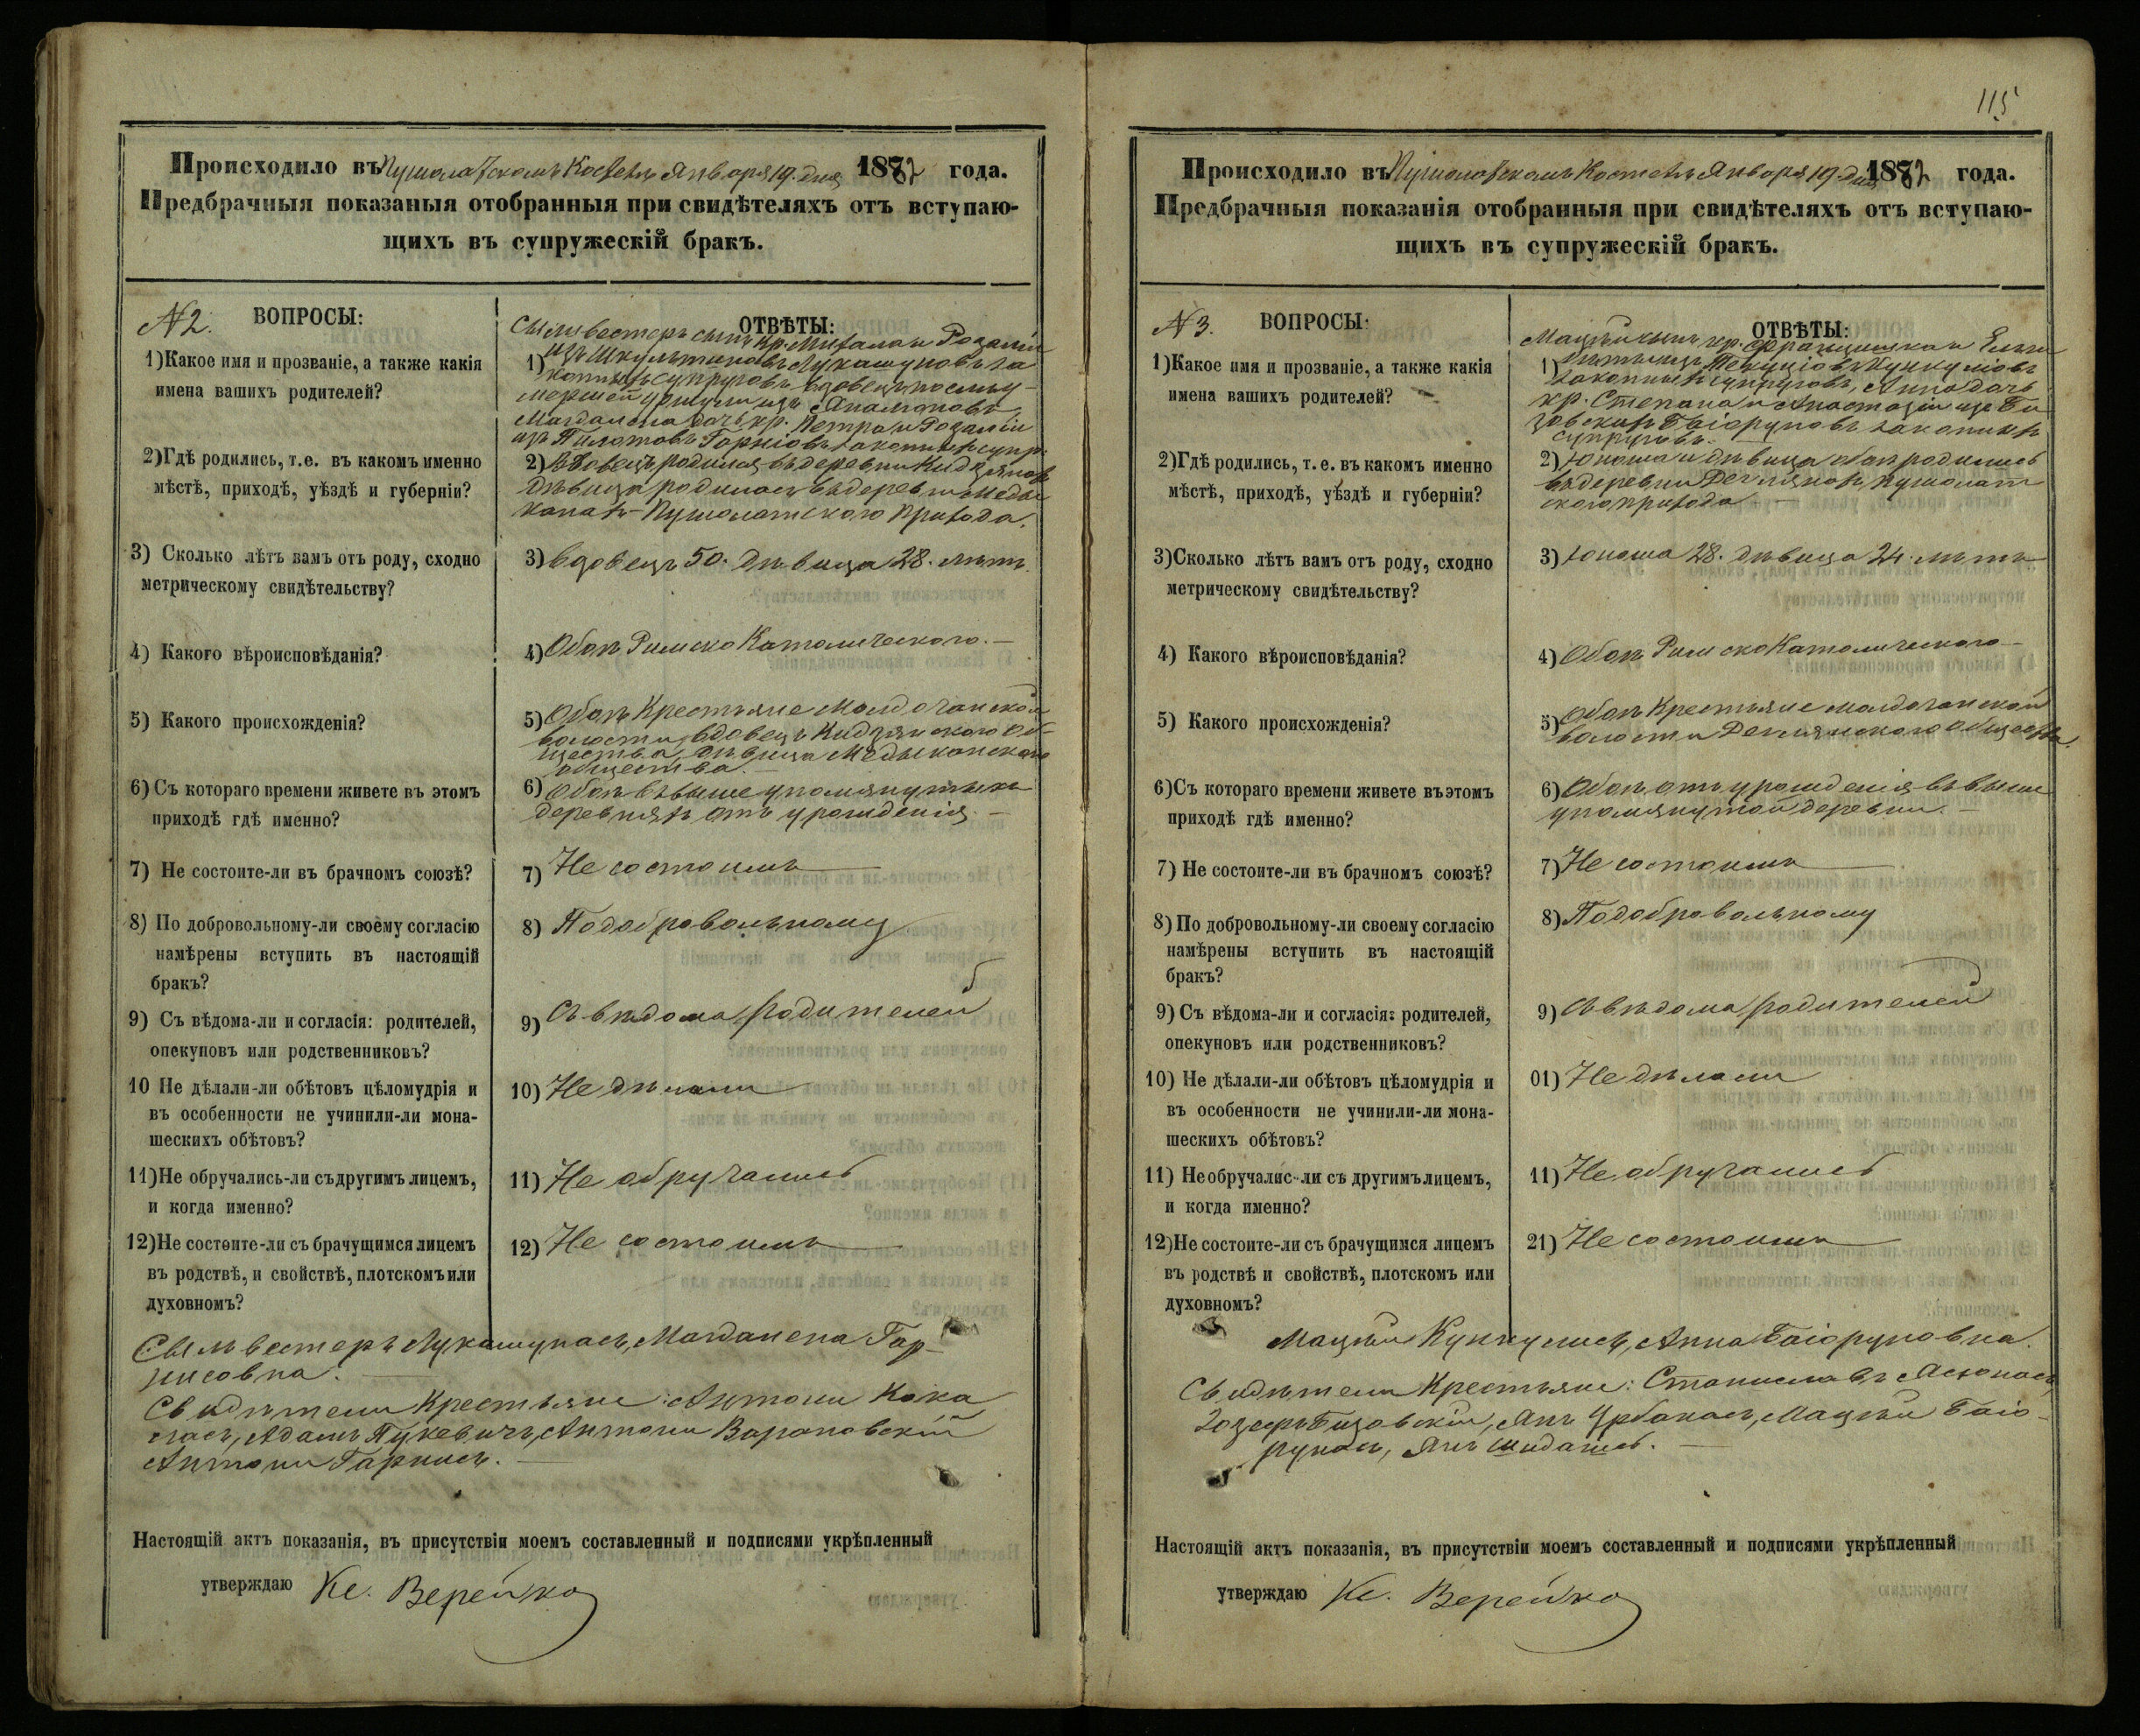 Происходило въ Пушолатскомъ Костелѣ Января 19. дня 1882 года.
Предбрачныя показаныя отобранныя при свидѣтеляхъ отъ вступаю-
щихъ въ супружескій бракъ.
N 2. ВОПРОСЫ:
1)Какое имя и прозваніе, а также какія
имена вашихъ родителей?
2)Гдѣ родились, т.е. въ какомъ именно
мѣстѣ, приходѣ, уѣздѣ и губерніи?
3) Сколько лѣтъ вамъ отъ роду, сходно
метрическому свидѣтельству?
4) Какого вѣроисповѣданія?
5) Какого происхожденія?
6) Съ котораго времени живете въ этомъ
приходѣ гдѣ именно?
7) Не состоите-ли въ брачномъ союзѣ?
8) По добровольному-ли своему согласію
намѣрены вступить въ настоящій
бракъ?
9) Съ вѣдома-ли и согласія: родителей,
опекуновъ или родственниковъ?
10 Не дѣлали-ли обѣтовъ цѣломудрія и
въ особенности не учинили-ли мона-
шескихъ обѣтовъ?
11)Не обручались-ли съ другимъ лицемъ,
и когда именно?
12)Не состоите-ли съ брачущимся лицемъ
въ родствѣ, и свойствѣ, плотскомъ или
духовномъ?
ОТВѢТЫ:
Сыльвестеръ сынъ кр. Михала и Розаліи
1) изъ Лукашуновъ за
конныхъ супруговъ вдовецъ по сему
мершей
Магдалена дочь кр. Петра и Розаліи
изъ законныхъ супр.
2) Вдовецъ родился въ деревни
дѣвица родилась въ деревни Меды
канахъ Пушолатского прихода.
3) Вдовецъ 50. дѣвица 28. лѣтъ.
4) Обоя Римско Католического. —
5) Обоя Крестьяне
волости, вдовецъ Об-
щества, дѣвица Медыканского
общества. —
6) Обоя въ выше упомянутыхъ
деревняхъ отъ урожденія. —
7) Не состоимъ
8) По добровольному
9) Съ вѣдома родителей
10) Не дѣлали
11) Не обручались
12) Не состоимъ
Сыльвестеръ Лукашунасъ, Магдалена Гар-
нисовна. —
Свидѣтели Крестьяне: Антони Кака
насъ, Адамъ Пукевичъ, Антони Барановскій
Антони Гарнисъ. —
Настоящій актъ показанія, въ присутствіи моемъ составленный и подписями укрѣпленный
утверждаю Кс. Верейко
115
Происходило въ Пушолатскомъ Костелѣ Января 19. дня 1882 года.
Предбрачныя показанія отобранныя при свидѣтеляхъ отъ вступаю-
щихъ въ супружескій бракъ.
N 3. ВОПРОСЫ:
1)Какое имя и прозваніе, а также какія
имена вашихъ родителей?
2)Гдѣ родились, т. е. въ какомъ именно
мѣстѣ, приходѣ, уѣздѣ и губерніи?
3)Сколько лѣтъ вамъ отъ роду, сходно
метрическому свидѣтельству?
4) Какого вѣроисповѣданія?
5) Какого происхожденія?
6)Съ котораго времени живете въ этомъ
приходѣ гдѣ именно?
7) Не состоите-ли въ брачномъ союзѣ?
8) По добровольному-ли своему согласію
намѣрены вступить въ настоящій
бракъ?
9) Съ вѣдома-ли и согласія: родителей,
опекуновъ или родственниковъ?
10) Не дѣлали-ли обѣтовъ цѣломудрія и
въ особенности не учинили-ли мона-
шескихъ обѣтовъ?
11) Необручалис-ли съ другимъ лицемъ,
и когда именно?
12)Не состоите-ли съ брачущимся лицемъ
въ родствѣ и свойствѣ, плотскомъ или
духовномъ?
ОТВѢТЫ:
Мацѣй сынъ кр. Францишка и
1) Кункулювъ
законныхъ супруговъ, Анна дочь
кр. Степана и Анастазіи изъ Би
зовскихъ Баіоруновъ законныхъ
супруговъ. —
2) Юноша и дѣвица обоя родились
въ деревни Пушолат
ского прихода —
3) Юноша 28. дѣвица 24. лѣтъ
4) Обоя Римско Католического —
5) Обоя Крестьяне
волости Общества.
6) Обоя отъ урожденія въ выше
упомянутой деревни. —
7) Не состоимъ
8) По добровольному
9) Съ вѣдома родителей
01) Не дѣлали
11) Не обручались
21) Не состоимъ
Мацѣй Кункулисъ, Анна Баіоруновна.
Свидѣтели Крестьяне: Станиславъ
Іозефъ Бизовскій, Янъ Урбанасъ, Мацѣй Баіо-
рунасъ, Янъ —
Настоящій актъ показанія, въ присутствіи моемъ составленный и подписями укрѣпленный
утверждаю Кс. Верейко